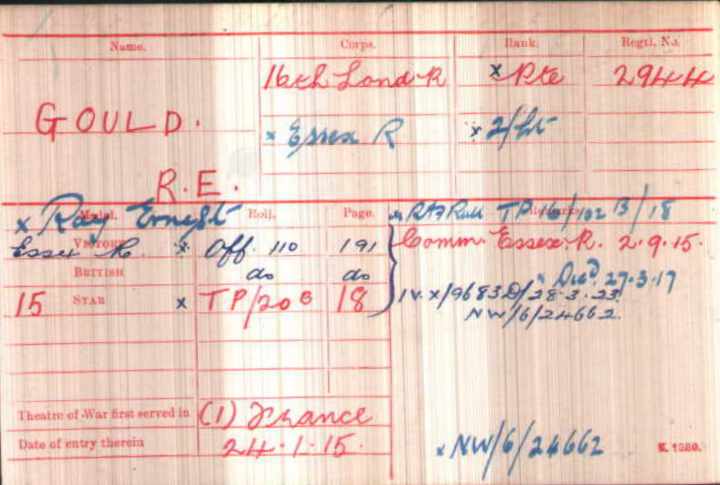 Name. Corps. Rank. Regtl. No.
16th Lond R x Pte 2944
GOULD.
x Essex R x 2/Lt
R.E.
x Ray Ernest
Medal. Roll. Page. Remarks.
TP 16/102 B/18
VICTORY Essex R. x Off. 110 191 Comm. Essex R. 2.9.15.
BRITISH do do x Died 27.3.17
15 STAR x TP/20 B 18 IV. X/9683D/28.3.23.
NW/6/24662.
Theatre of War first served in (1) France
Date of entry therein 24.1.15.
x NW/6/24662
K. 1380.